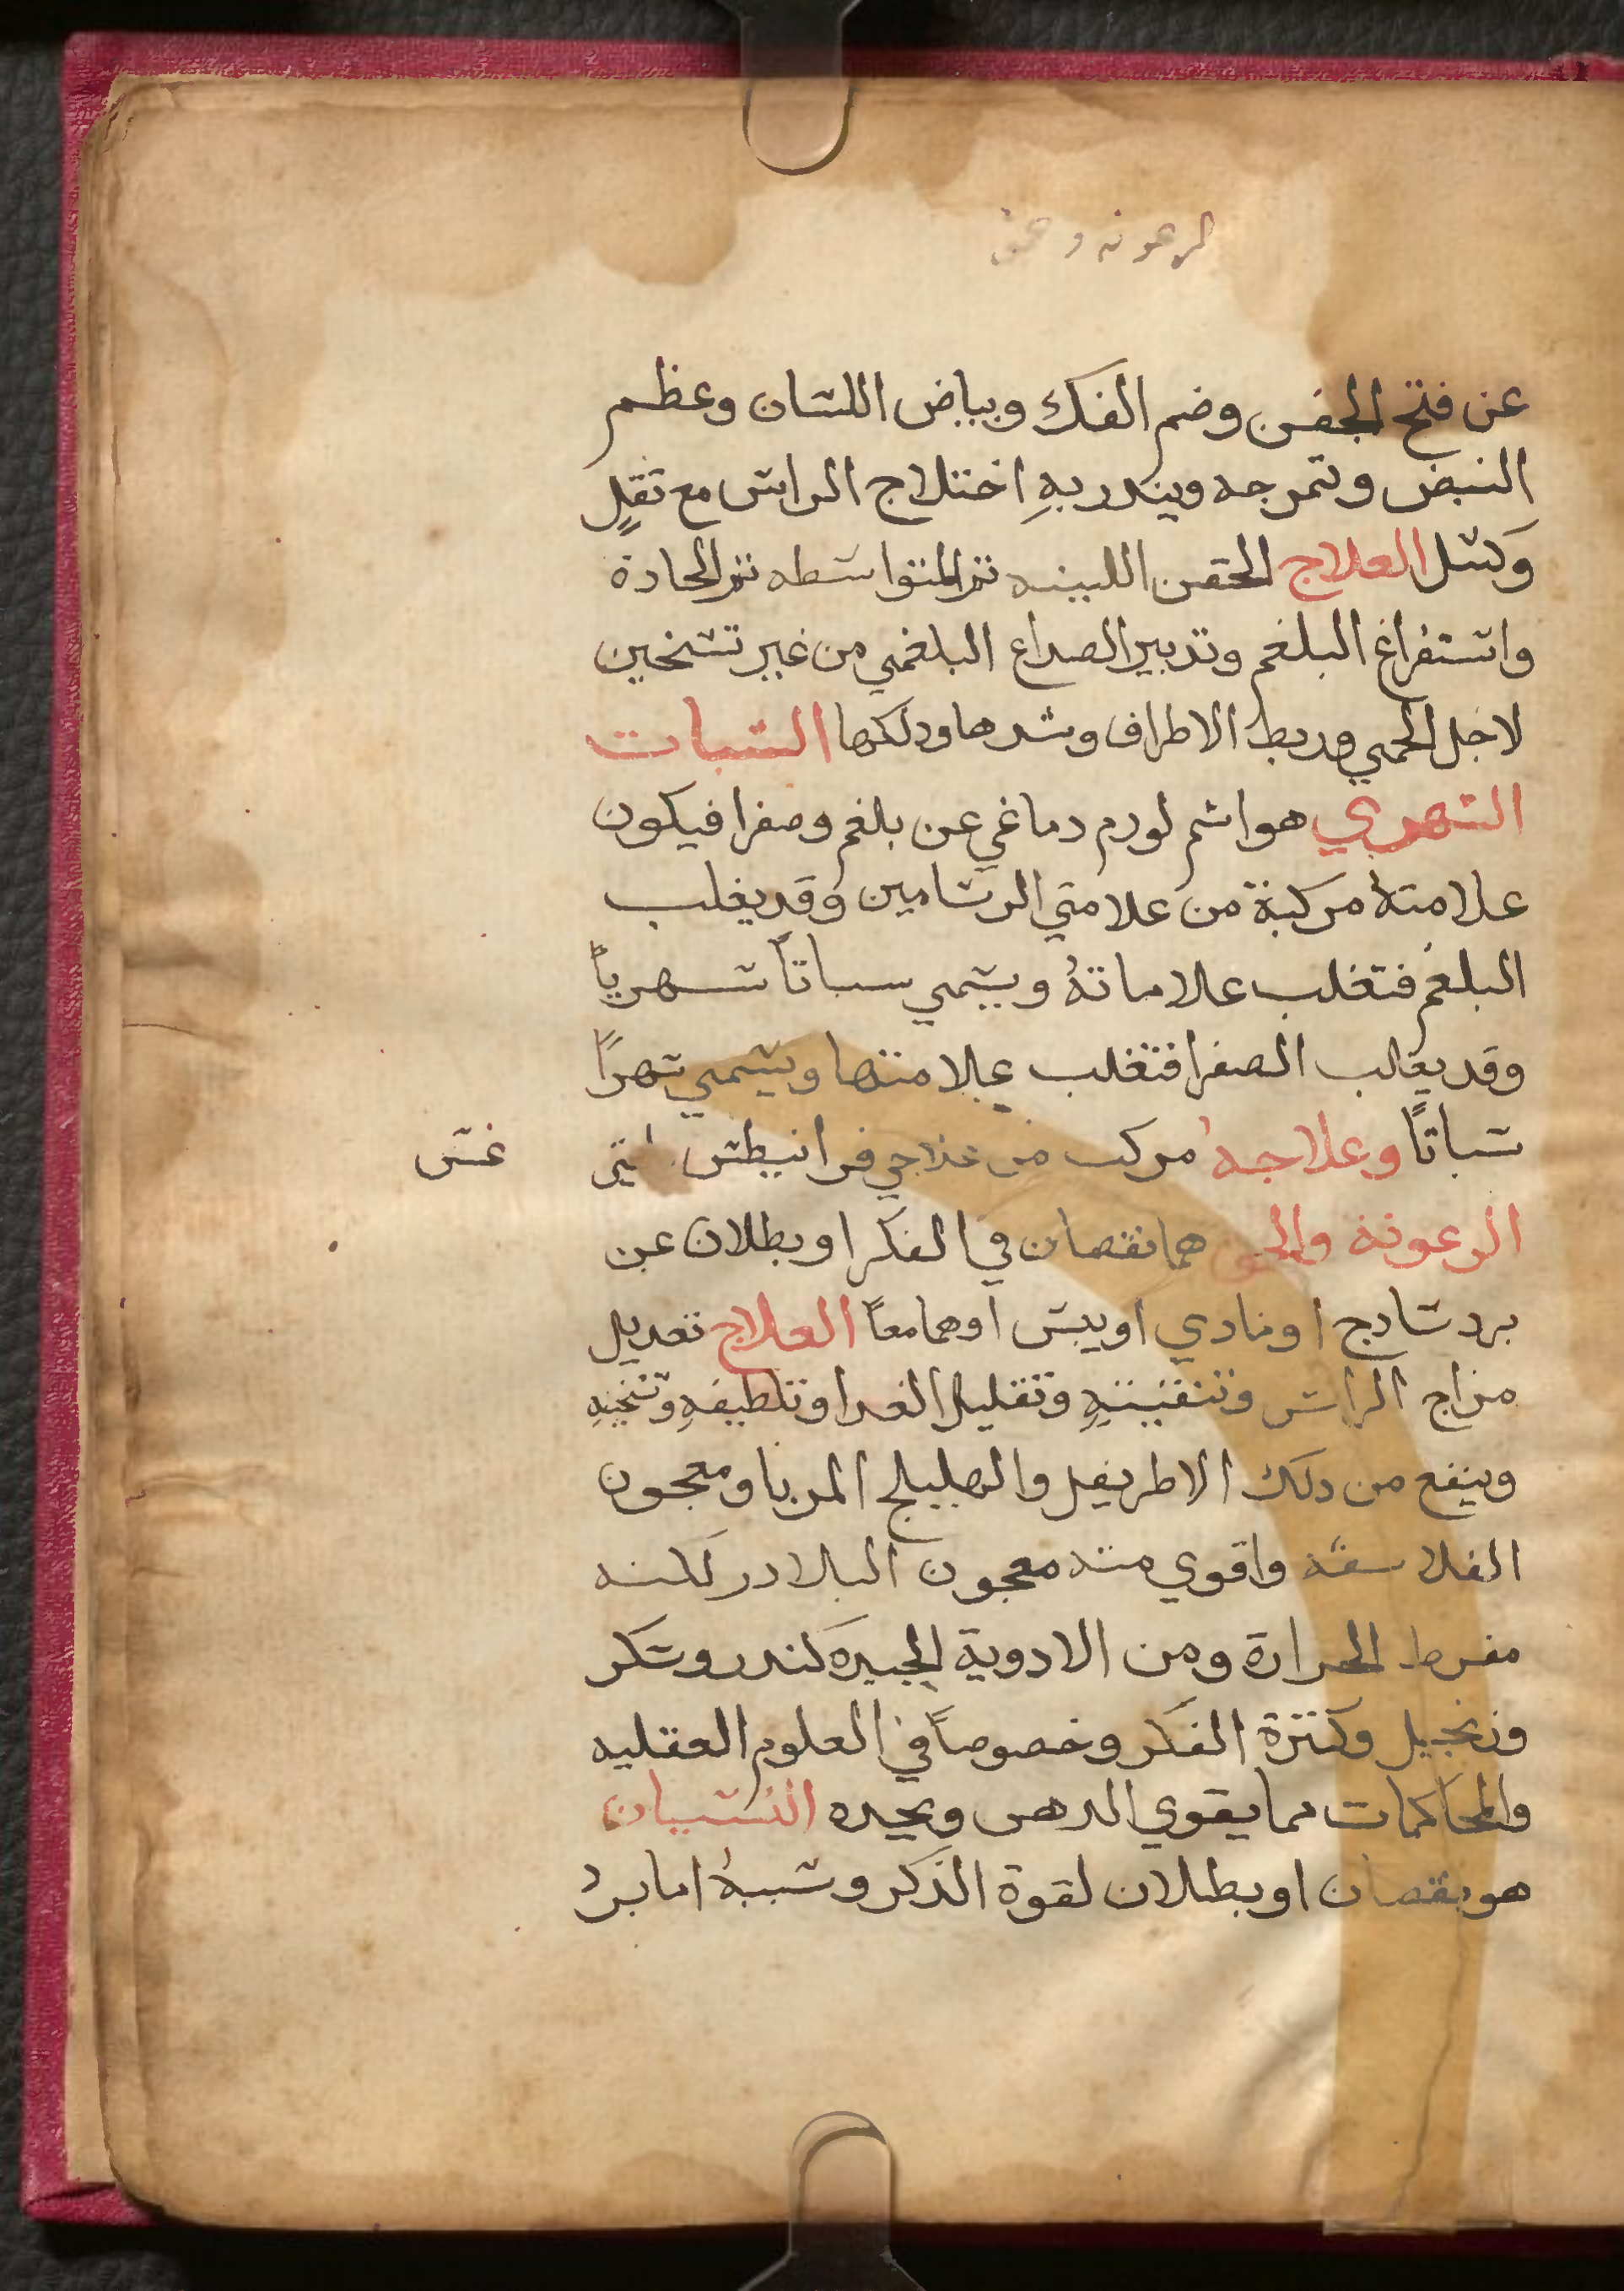 الرعونه وحمق
عن فتح الجفن وضم الفك وبياض اللسان وعظم
النبض وتمرجه وينذر بهِ اختلاج الراس مع ثقلٍ
وكسل العلاج الحقن اللينه ثم المتواسطه ثم الحادة
واستفراغ البلغم وتدبير الصداع البلغمي من غير تسخين
لاجل الحمي وربط الاطراف وشدها ودلكها السبات
السهري هو اسم لورم دماغي عن بلغم وصفرا فيكون
علامتهُ مركبة من علامتي السرسامين وقد يغلب
البلغم فتغلب علاماتهُ ويسمي سباتاً سهرياً
وقد يغالب الصفرا فتغلب علامتها ويسمي سهراً
سباتاً وعلاجهُ مركب من علاجي فرانيطس غس
الرعونة والحمق هما نقصان في الفكر او بطلان عن
برد سادج او مادي او يبس او هما معاً العلاج تعديل
مزاج الراس وتنقيتهِ وتقليل الغدا وتلطيفهِ وتسخينهِ
وينفع من دلك الاطريفل والهليلج المربا ومعجون
الفلاسفه واقوي منه معجون البلادر لكنه
مفرط الحرارة ومن الادوية الجيده كندر وسكر
وزنجبيل وكثرة الفكر وخصوصاً في العلوم العقليه
والمحاكمات مما يقوي الدهن ويجيده النسيان
هو نقصان او بطلان لقوة الذكر وسببهُ اما بردُ